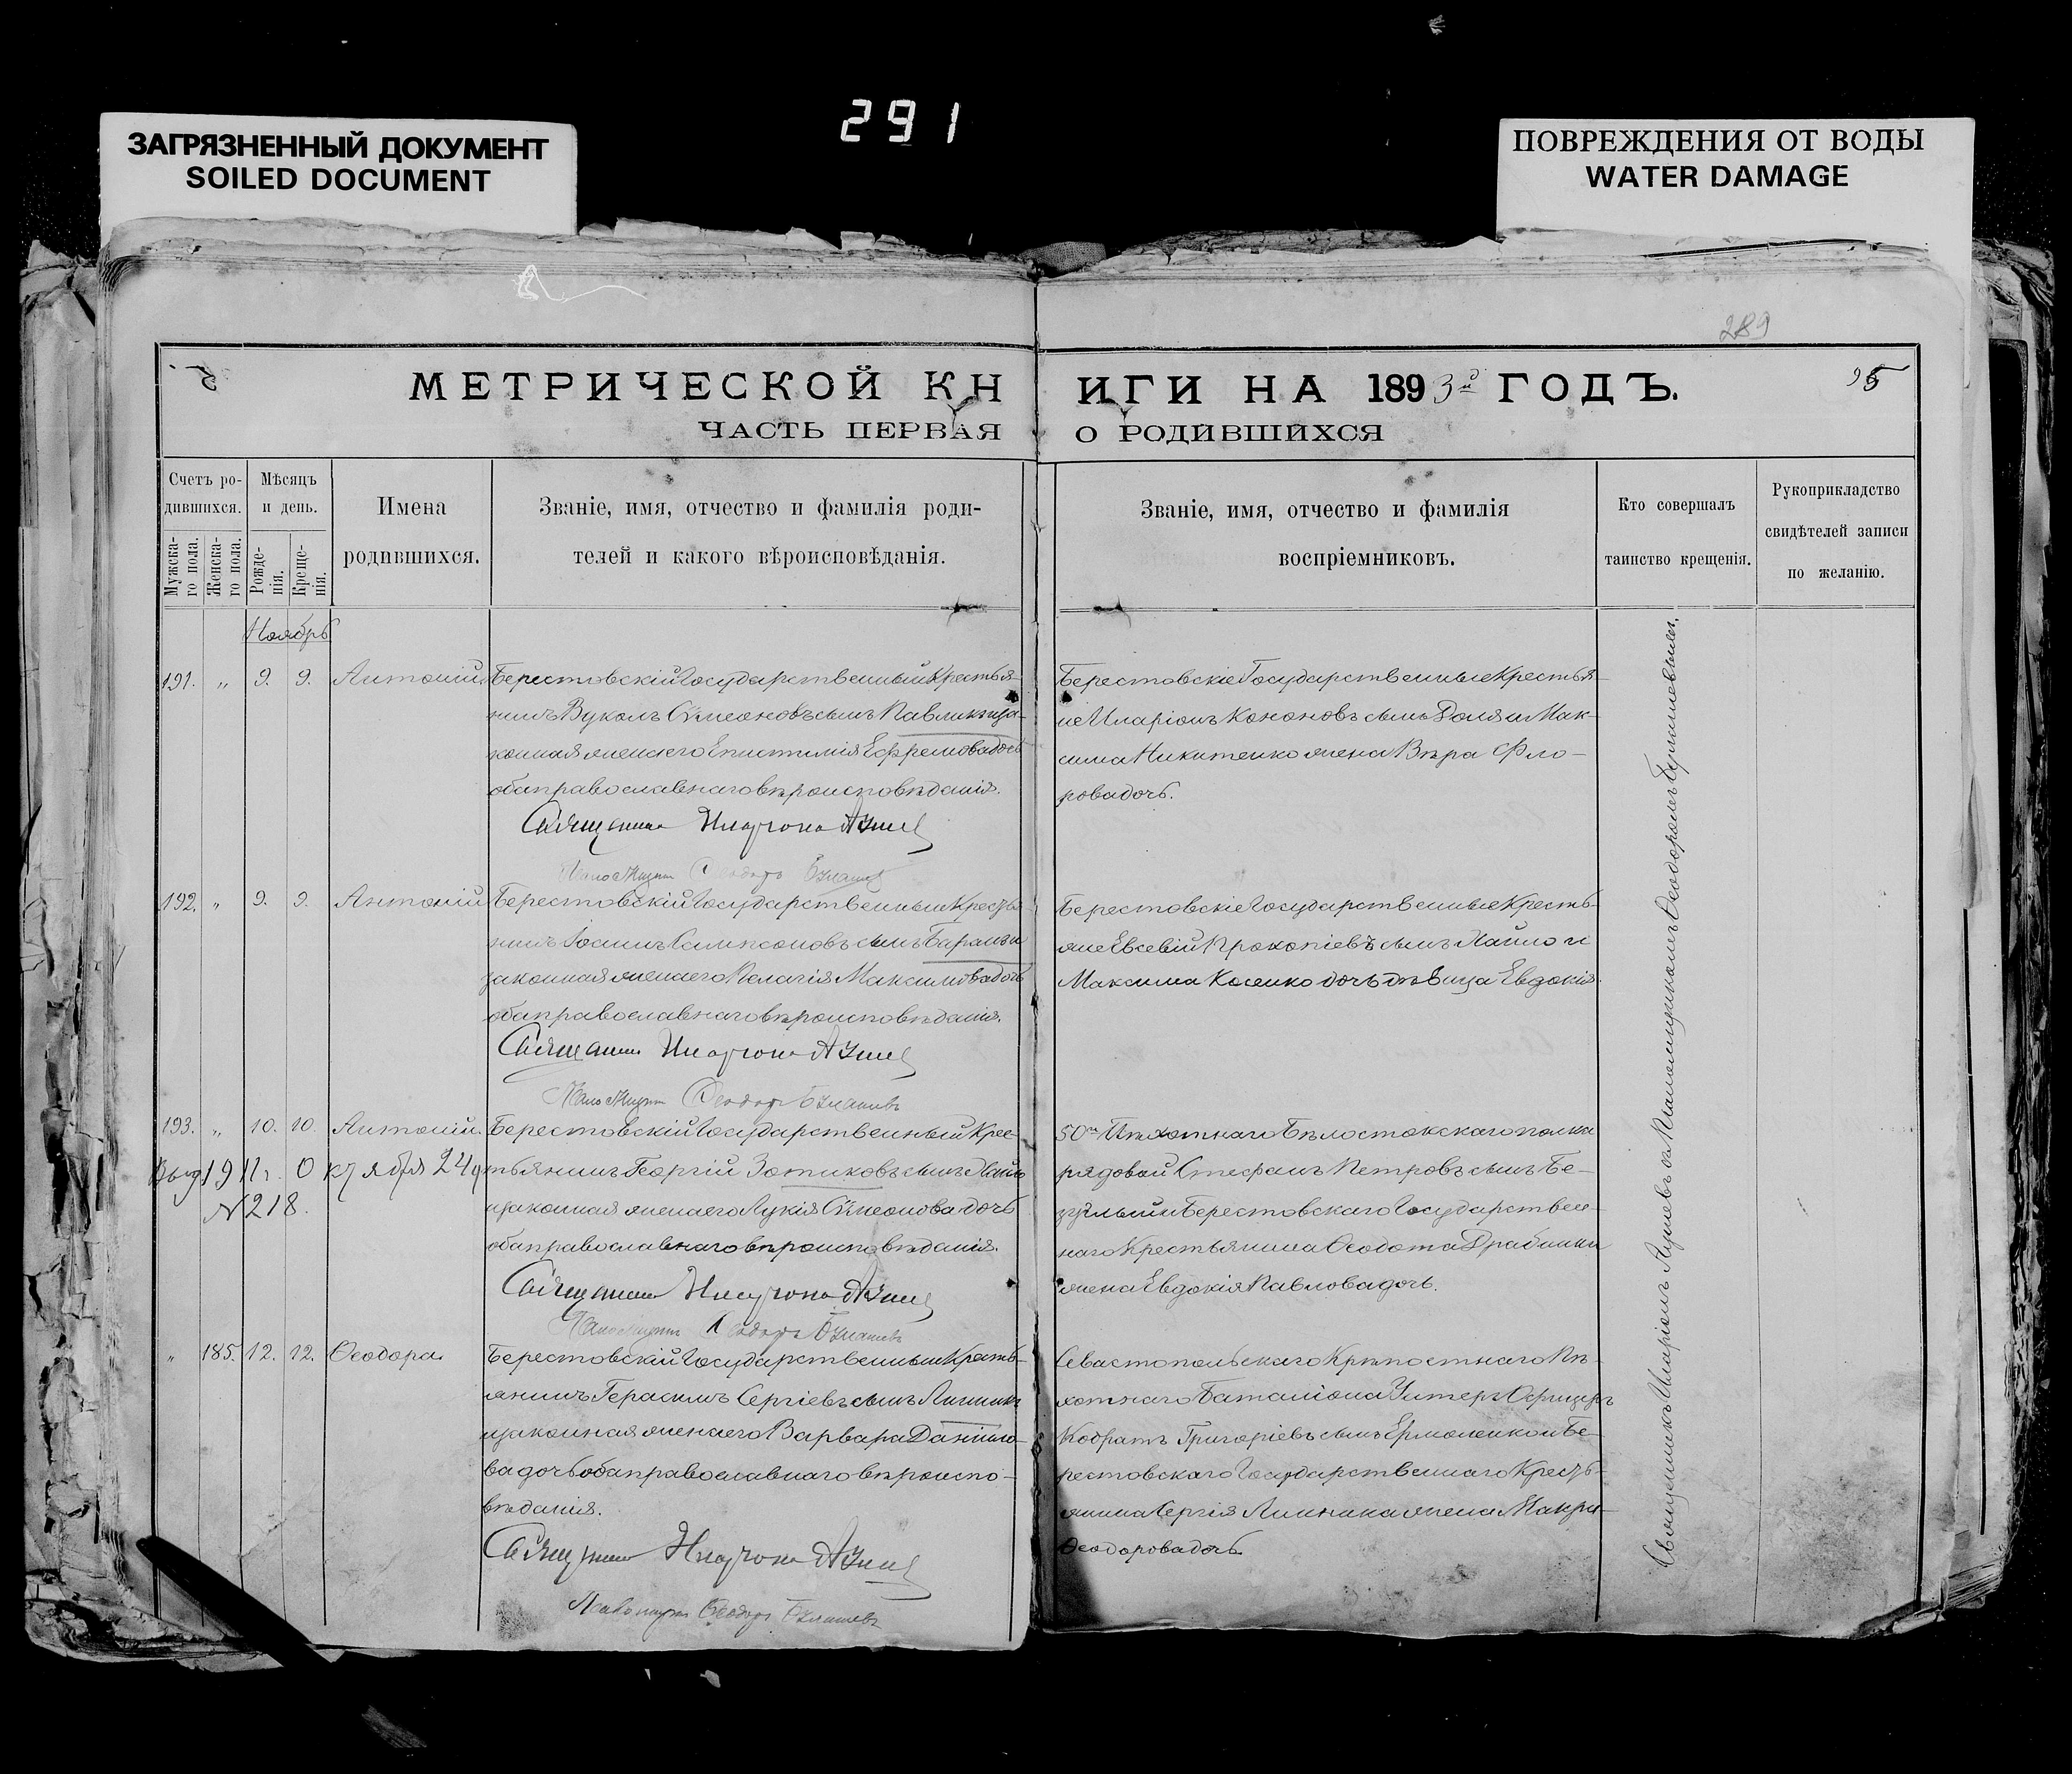 291
ЗАГРЯЗНЕННЫЙ ДОКУМЕНТ
SOILED DOCUMENT
ПОВРЕЖДЕНИЯ ОТ ВОДЫ
WATER DAMAGE
289
95
МЕТРИЧЕСКОЙ КНИГИ НА 1893й ГОДЪ.
ЧАСТЬ ПЕРВАЯ О РОДИВШИХСЯ
Счетъ ро-
дившихся.
Мужска-
го пола.
Женска-
го пола.
Мѣсяцъ
и день.
Рожде-
нія.
Креще-
нія.
Имена
родившихся.
Званіе, имя, отчество и фамилія роди-
телей и какого вѣроисповѣданія.
Званіе, имя, отчество и фамилія
воспріемниковъ.
Кто совершалъ
таинство крещенія.
Рукоприкладство
свидѣтелей записи
по желанію.
Ноябрь
191. " 9. 9. Антоній
Берестовскій Государственный Крестья-
нинъ Вуколъ Сѵмеоновъ сынъ и за-
конная жена его Епистимія Ефремова дочь
оба православнаго вѣроисповѣданія.
Священникъ
Псаломщикъ Ѳеодоръ
Берестовскіе Государственные Крестья-
не Иларіонъ Кононовъ сынъ Доля и Мак-
сима Никитенко жена Вѣра Фло-
рова дочь.
192. " 9. 9. Антоній
Берестовскій Государственный Кресть-
нинъ Іоаннъ Сампсоновъ сынъ и
законная жена его Пелагія Максимова дочь
оба православнаго вѣроисповѣданія.
Священникъ
Псаломщикъ Ѳеодоръ
Берестовскіе Государственные Кресть-
яне Евсевій Прокопіевъ сынъ и
Максима Косенко дочь дѣвица Евдокія.
193. " 10. 10. Антоній.
Выд 1911г. Октября 24
N218.
Берестовскій Государственный Крес-
тьянинъ Георгій Зотиковъ сынъ
и законная жена его Лукія Сѵмеонова дочь
оба православнаго вѣроисповѣданія.
Священникъ
Псаломщикъ Ѳеодоръ
50го Пѣхотнаго Бѣлостокскаго полка
рядовой Стефанъ Петровъ сынъ Бе-
зуглый и Берестовскаго Государствен-
наго Крестьянина Ѳеодота
жена Евдокія Павлова дочь.
" 185. 12. 12. Ѳеодора.
Берестовскій Государственный Кресть-
янинъ Герасимъ Сергіевъ сынъ Линникъ
и законная жена его Варвара Даніило-
ва дочь оба православнаго вѣроиспо-
вѣданія.
Священникъ
Псаломщикъ Ѳеодоръ
Севастопольскаго Крѣпостнаго Пѣ-
хотнаго Баталіона Унтеръ Офицеръ
Кодратъ Григоріевъ сынъ Ермоленко и Бе-
рестовскаго Государственнаго Кресть-
янина Сергія Линника жена
Ѳеодорова дочь.
Священникъ Иларіонъ съ Псаломщикомъ Ѳеодоромъ